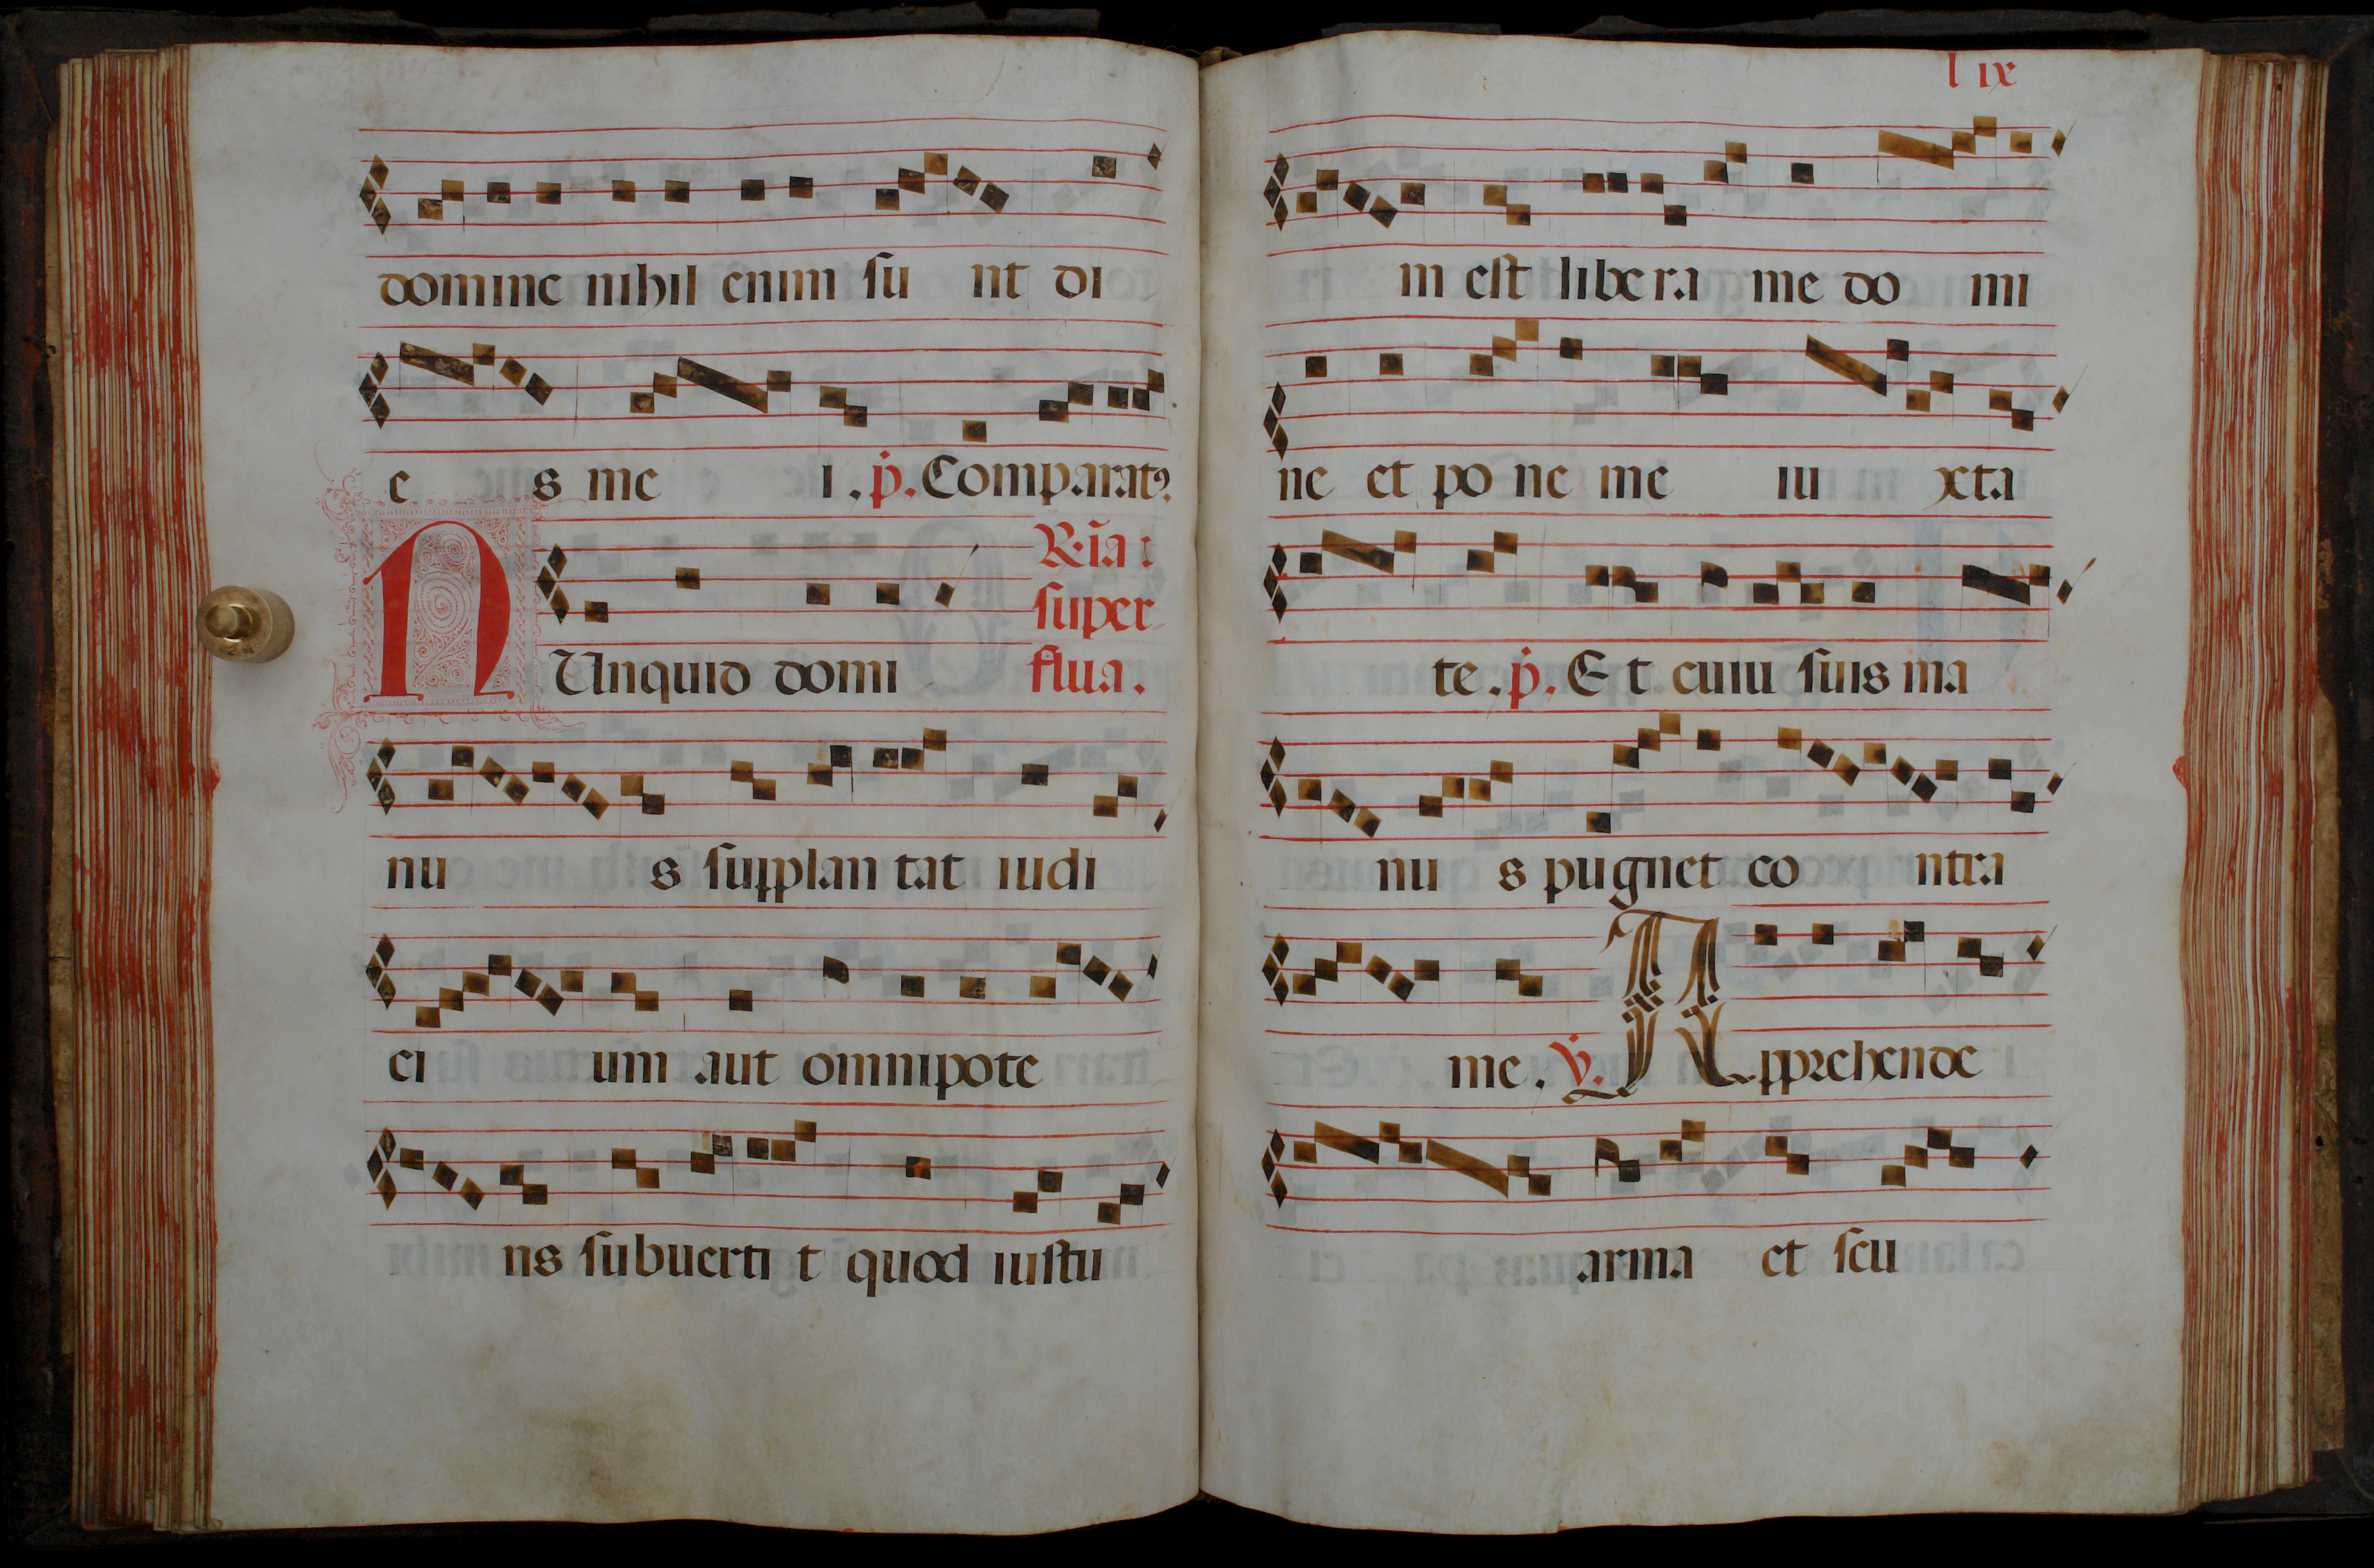 domine nihil enim su nt di
e s me i . p. Comparatꝰ
R. ia :
super
flua .
NUnquid domi
nu s supplan tat iudi
ci um aut omnipote
ns subuerti t quod iustu
l ix
m est libera me do mi
ne et po ne me iu xta
te . p. Et cuiu suis ma
nu s pugnet co ntra
me . v. Apprehende
arma et scu